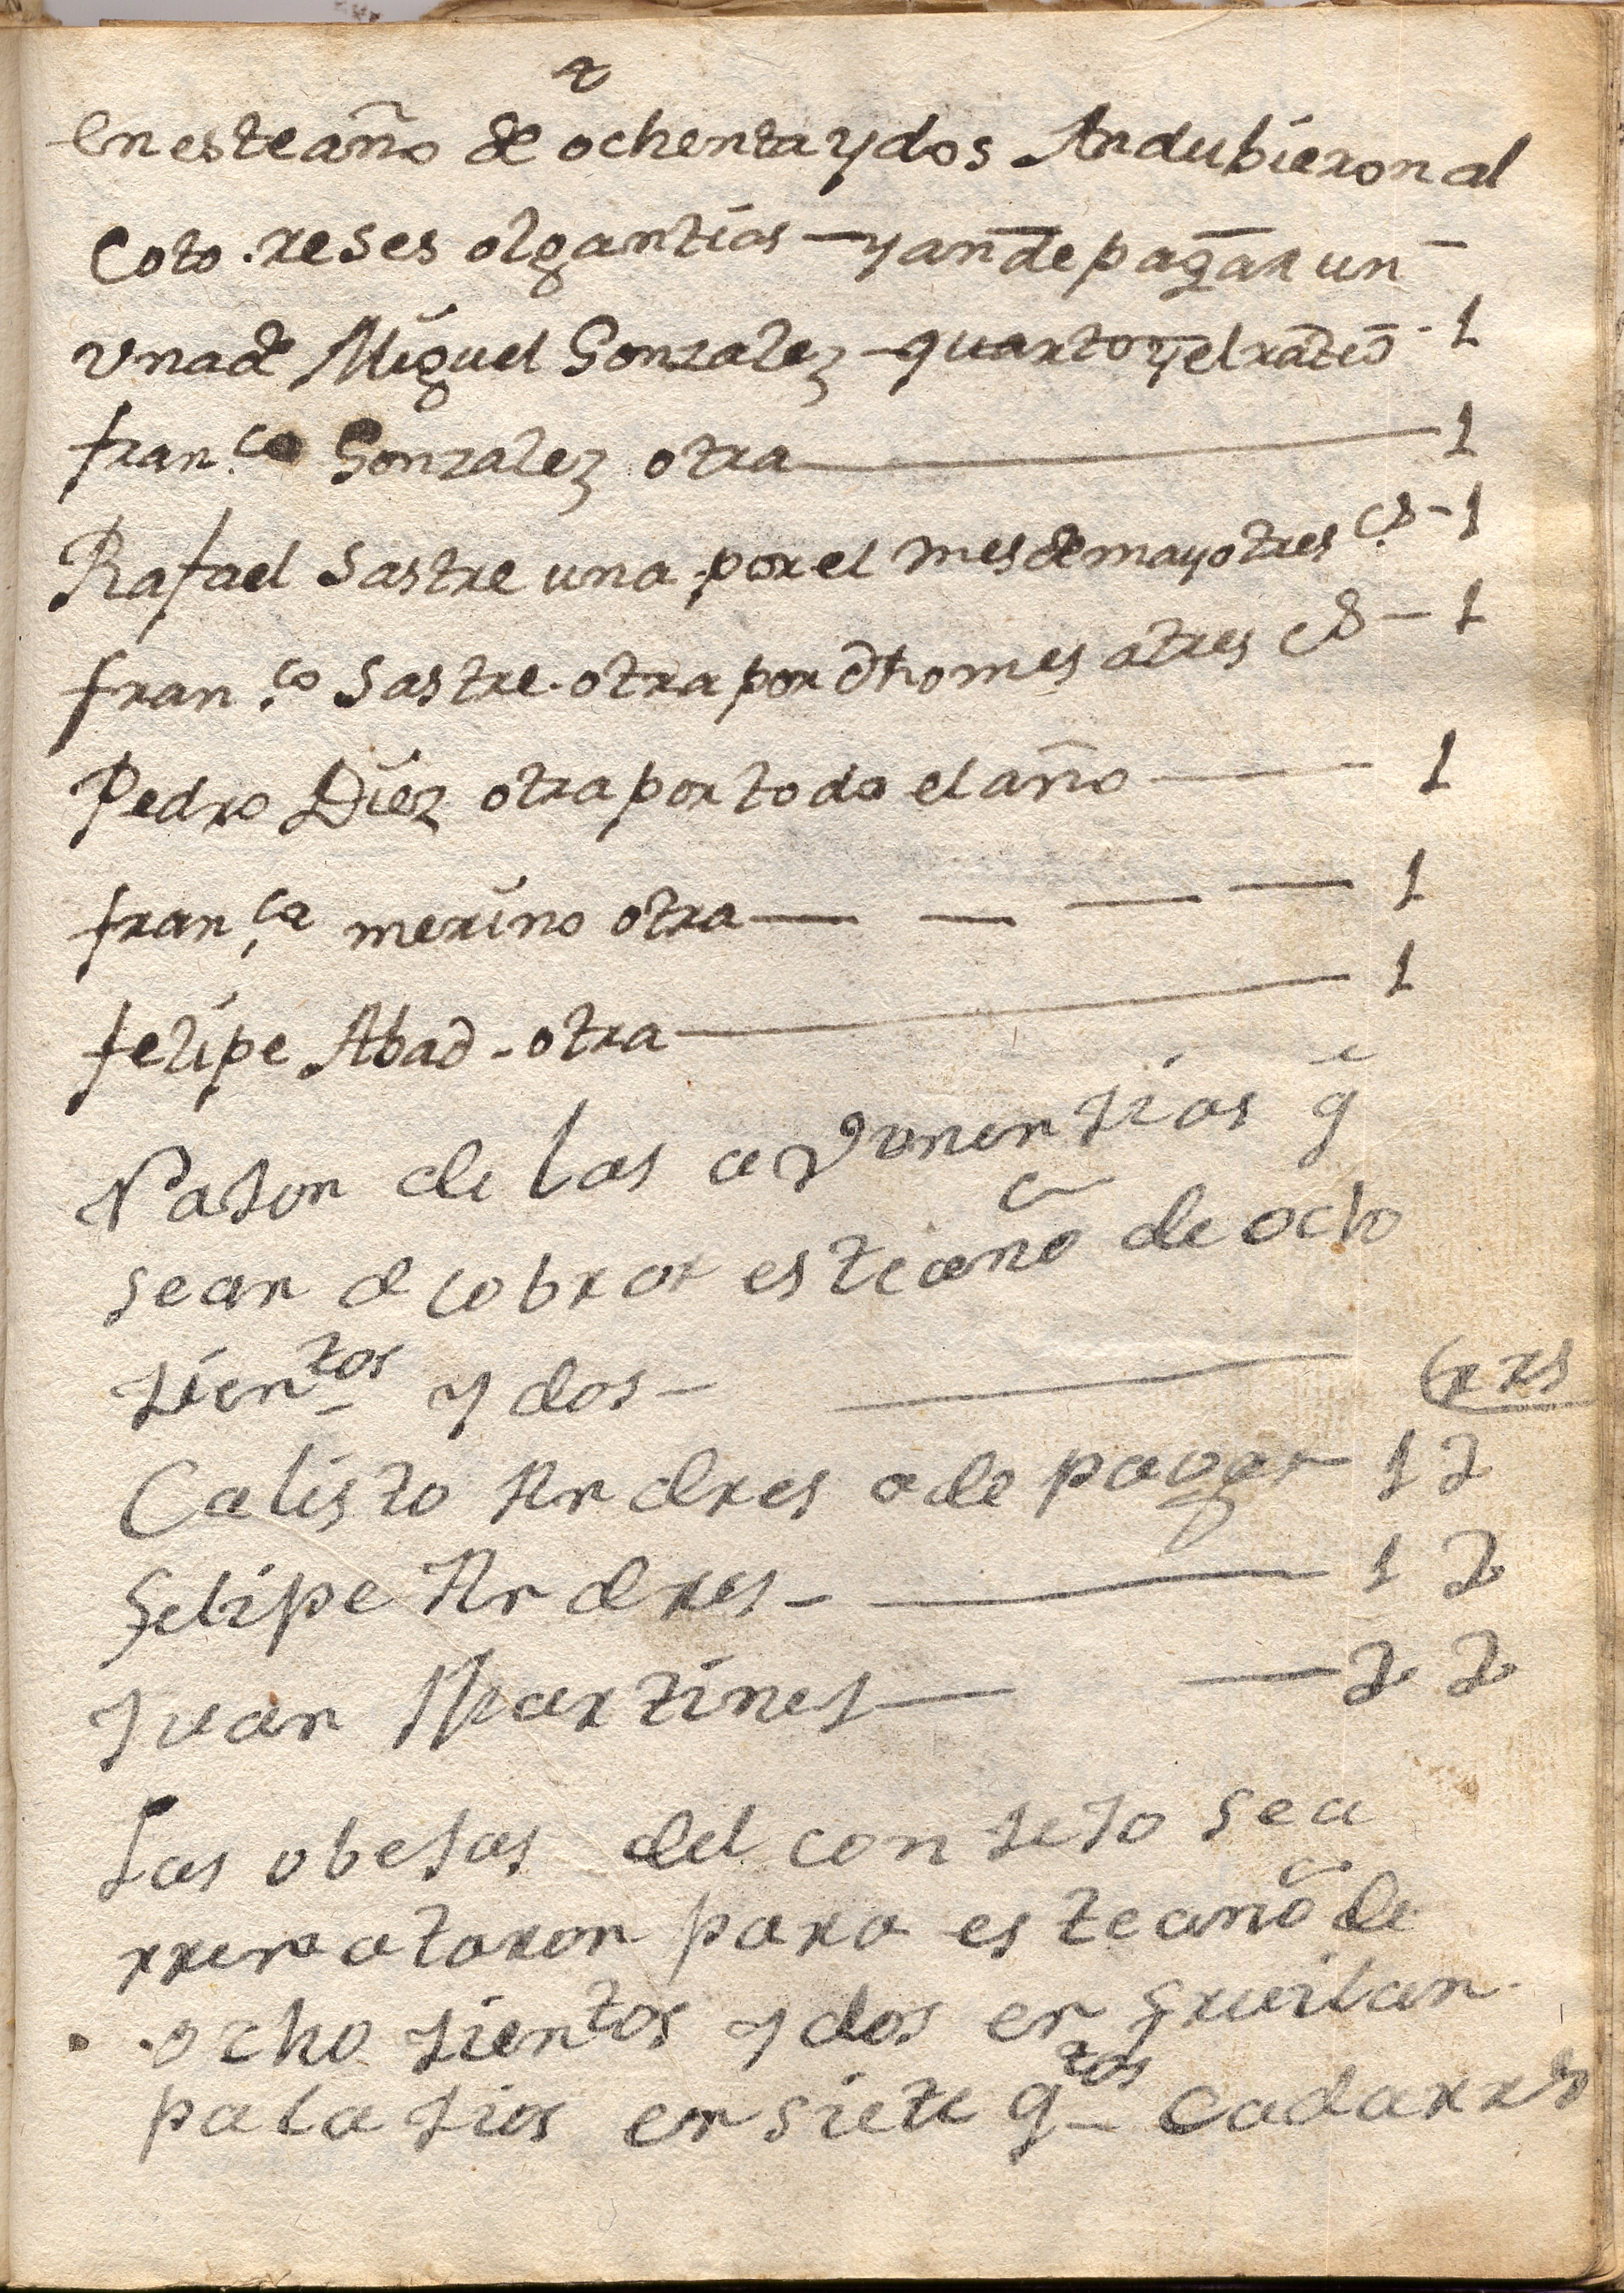 en este año de ochenta y dos Andubieron al
Coto reses olgantias — y an de pagar un
una de Miguel Gonzalez — quarto y el ratio - 1
fran.ca Gonzalez otra — 1
Rafael Sastre una por el mes de mayo tres — 1
fran.co Sastre otra por dho mes a tres — 1
Pedro Diez otra por todo el año — 1
fran.ca merino otra — — — — 1
felipe Abad - otra — 1
Rason de las q̃
se an de cobrar este año de ocho
sientos y dos — —
Calisto Andres a de pagar 12
Felipe Andres — — 12
Juan Martines — — 22
Las obejas del consejo se a
rrematoron para este año de
ocho sientos y dos en
palasios en siete qtos cada